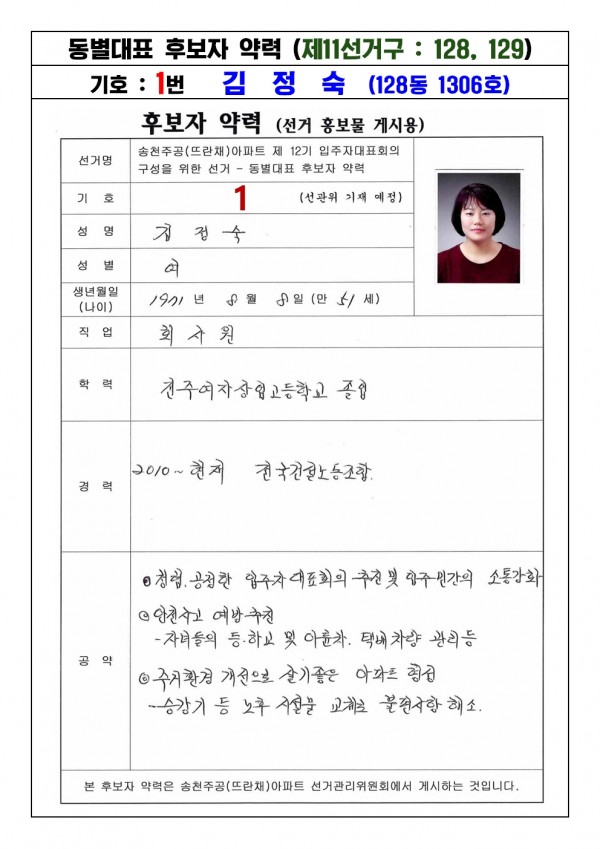 동별대표 후보자 약력 (제11선거구 : 128, 129)
기호 : 1번 김 정 숙 (128동 1306호)
후보자 약력 (선거 홍보물 게시용)
선거명
송천주공(뜨란채)아파트 제 12기 입주자대표회의
구성을 위한 선거 - 동별대표 후보자 약력
기 호
1 (선관위 기재 예정)
성 명
김 정 숙
성 별
여
생년월일
(나이)
1971 년 8 월 8 일 (만 51 세)
직 업
회 사 원
학 력
전주여자상업고등학교 졸업
경 력
2010 ~ 현재 전국건설노동조합.
공 약
◉ 청렴. 공정한 입주자 대표회의 추진 및 입주민간의 소통강화
◎ 안전사고 예방 추진
- 자녀들의 등.하교 및 이륜차. 택배차량 관리 등
◎ 주거환경 개선으로 살기좋은 아파트 형성
- 승강기 등 노후 시설물 교체로 불편사항 해소.
본 후보자 약력은 송천주공(뜨란채)아파트 선거관리위원회에서 게시하는 것입니다.